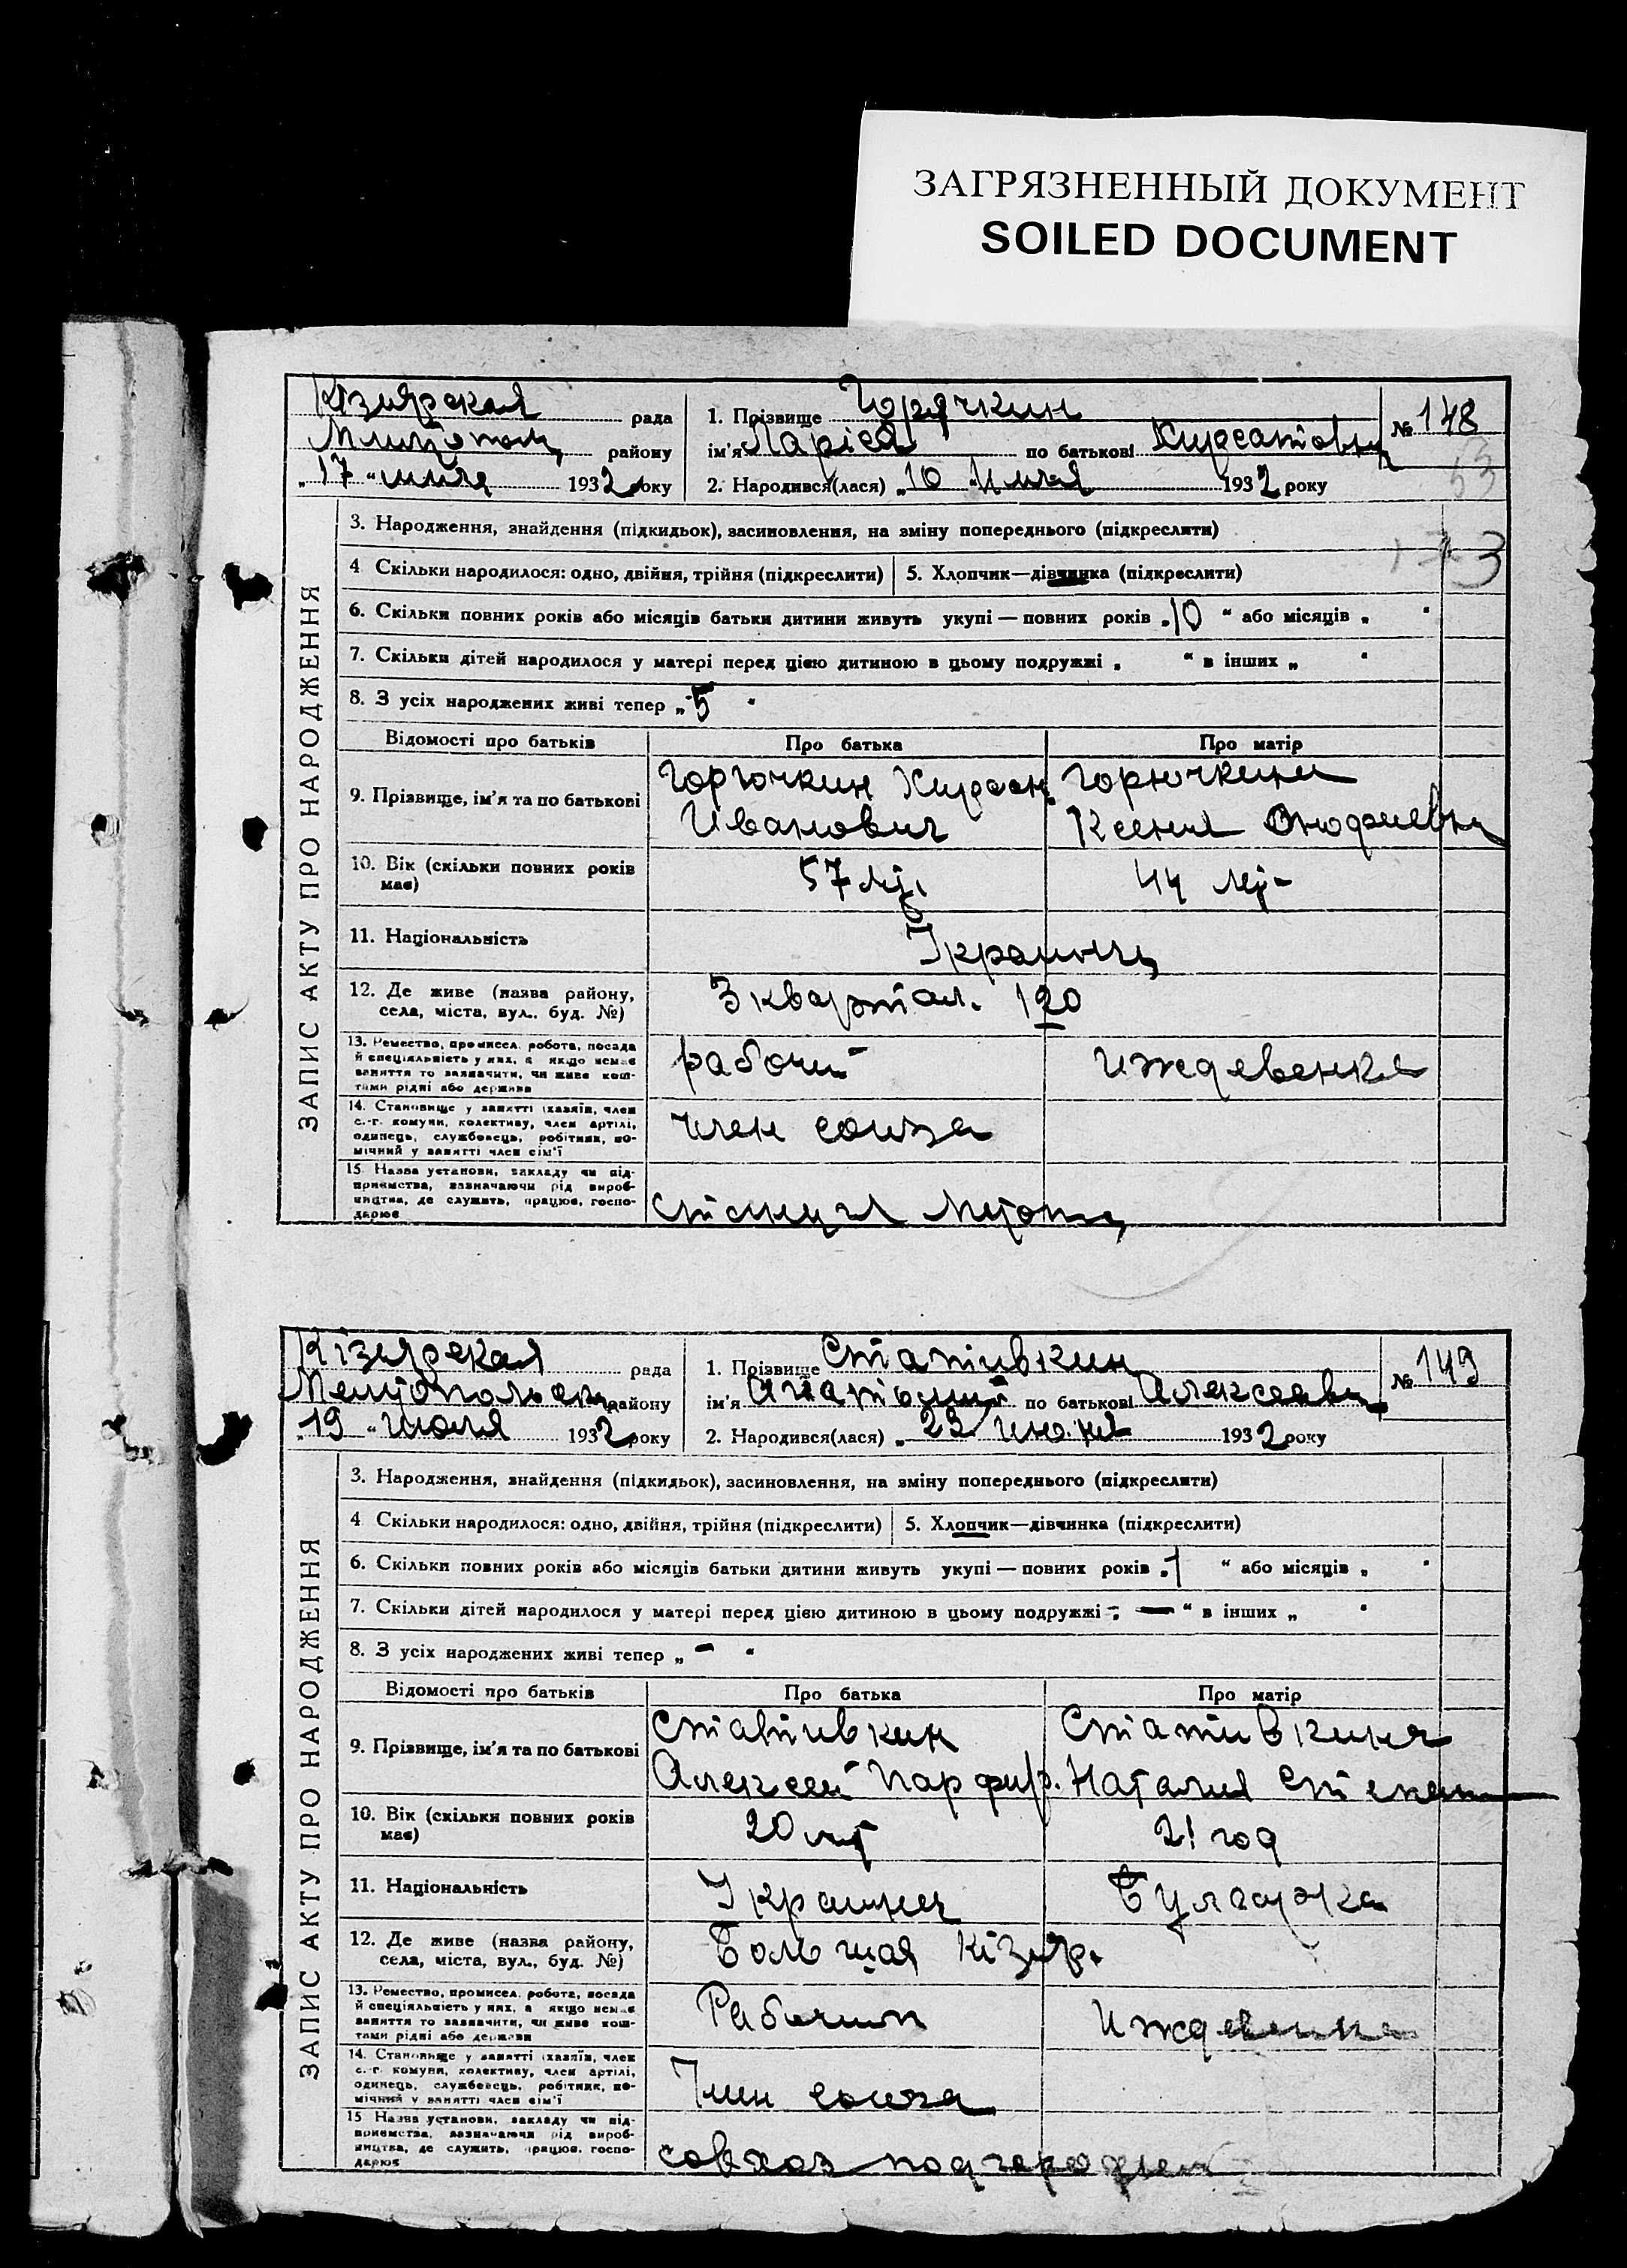 ЗАГРЯЗНЕННЫЙ ДОКУМЕНТ
SOILED DOCUMENT
Кізиярская рада
району
"17" июля 1932 року
1. Прізвище Горячкин
ім'я Ларіса по батькові
2. Народився(лася) "10" Июля 1932 року
№ 148
53
173
ЗАПИС АКТУ ПРО НАРОДЖЕННЯ
3. Народження, знайдення (підкидьок), засиновлення, на зміну попереднього (підкреслити)
4 Скільки народилося: одно, двійня, трійня (підкреслити) 5. Хлопчик—дівчинка (підкреслити)
6. Скільки повних років або місяців батьки дитини живуть укупі — повних років „10“ або місяців „ “
7. Скільки дітей народилося у матері перед цією дитиною в цьому подружжі „ “ в інших „ “
8. З усіх народжених живі тепер „5“
Відомості про батьків Про батька Про матір
9. Прізвище, ім'я та по батькові
Горючкин Хирсан. Горючкина
Иванович Ксения
10. Вік (скільки повних років має)
57 44
11. Національність
12. Де живе (назва району, села, міста, вул., буд. №)
3 квартал. 120
13. Ремество, промисел, робота, посада
й спеціяльність у них, а якщо немає
заняття то зазначити, чи живе кош-
тами рідні або держави
рабочий иждевенка
14. Становище у занятті (хазяїн, член
с.-г. комуни, колективу, член артілі,
одинець, службовець, робітник, по-
мічний у занятті член сім'ї
член союза
15 Назва установи, закладу чи під-
приємства, зазначаючи рід вироб-
ництва, де служить, працює, госпо-
дарює
Кізиярская рада
району
"19" Июля 1932 року
1. Прізвище Стативкин
ім'я Анатолий по батькові
2. Народився(лася) „23 Июня 1932 року
№ 149
ЗАПИС АКТУ ПРО НАРОДЖЕННЯ
3. Народження, знайдення (підкидьок), засиновлення, на зміну попереднього (підкреслити)
4 Скільки народилося: одно, двійня, трійня (підкреслити) 5. Хлопчик—дівчинка (підкреслити)
6. Скільки повних років або місяців батьки дитини живуть укупі — повних років „1 “ або місяців „ “
7. Скільки дітей народилося у матері перед цією дитиною в цьому подружжі „—“ в інших „ “
8. З усіх народжених живі тепер „-“
Відомості про батьків Про батька Про матір
9. Прізвище, ім'я та по батькові
Стативкин Стативкина
Алексей Парфир. Наталия Степан
10. Вік (скільки повних років має)
20 лет 21 год
11. Національність
Украинец Булгарка
12. Де живе (назва району, села, міста, вул., буд. №)
Большая Кізияр.
13. Ремество, промисел, робота, посада
й спеціяльність у них, а якщо немає
заняття то зазначити, чи живе кош-
тами рідні або держави
Рабочий Иждевенка
14. Становище у занятті (хазяїн, член
с.-г. комуни, колективу, член артілі,
одинець, службовець, робітник, по-
мічний у занятті член сім'ї
Член союза
15 Назва установи, закладу чи під-
приємства, зазначаючи рід вироб-
ництва, де служить, працює, госпо-
дарює
совхоз